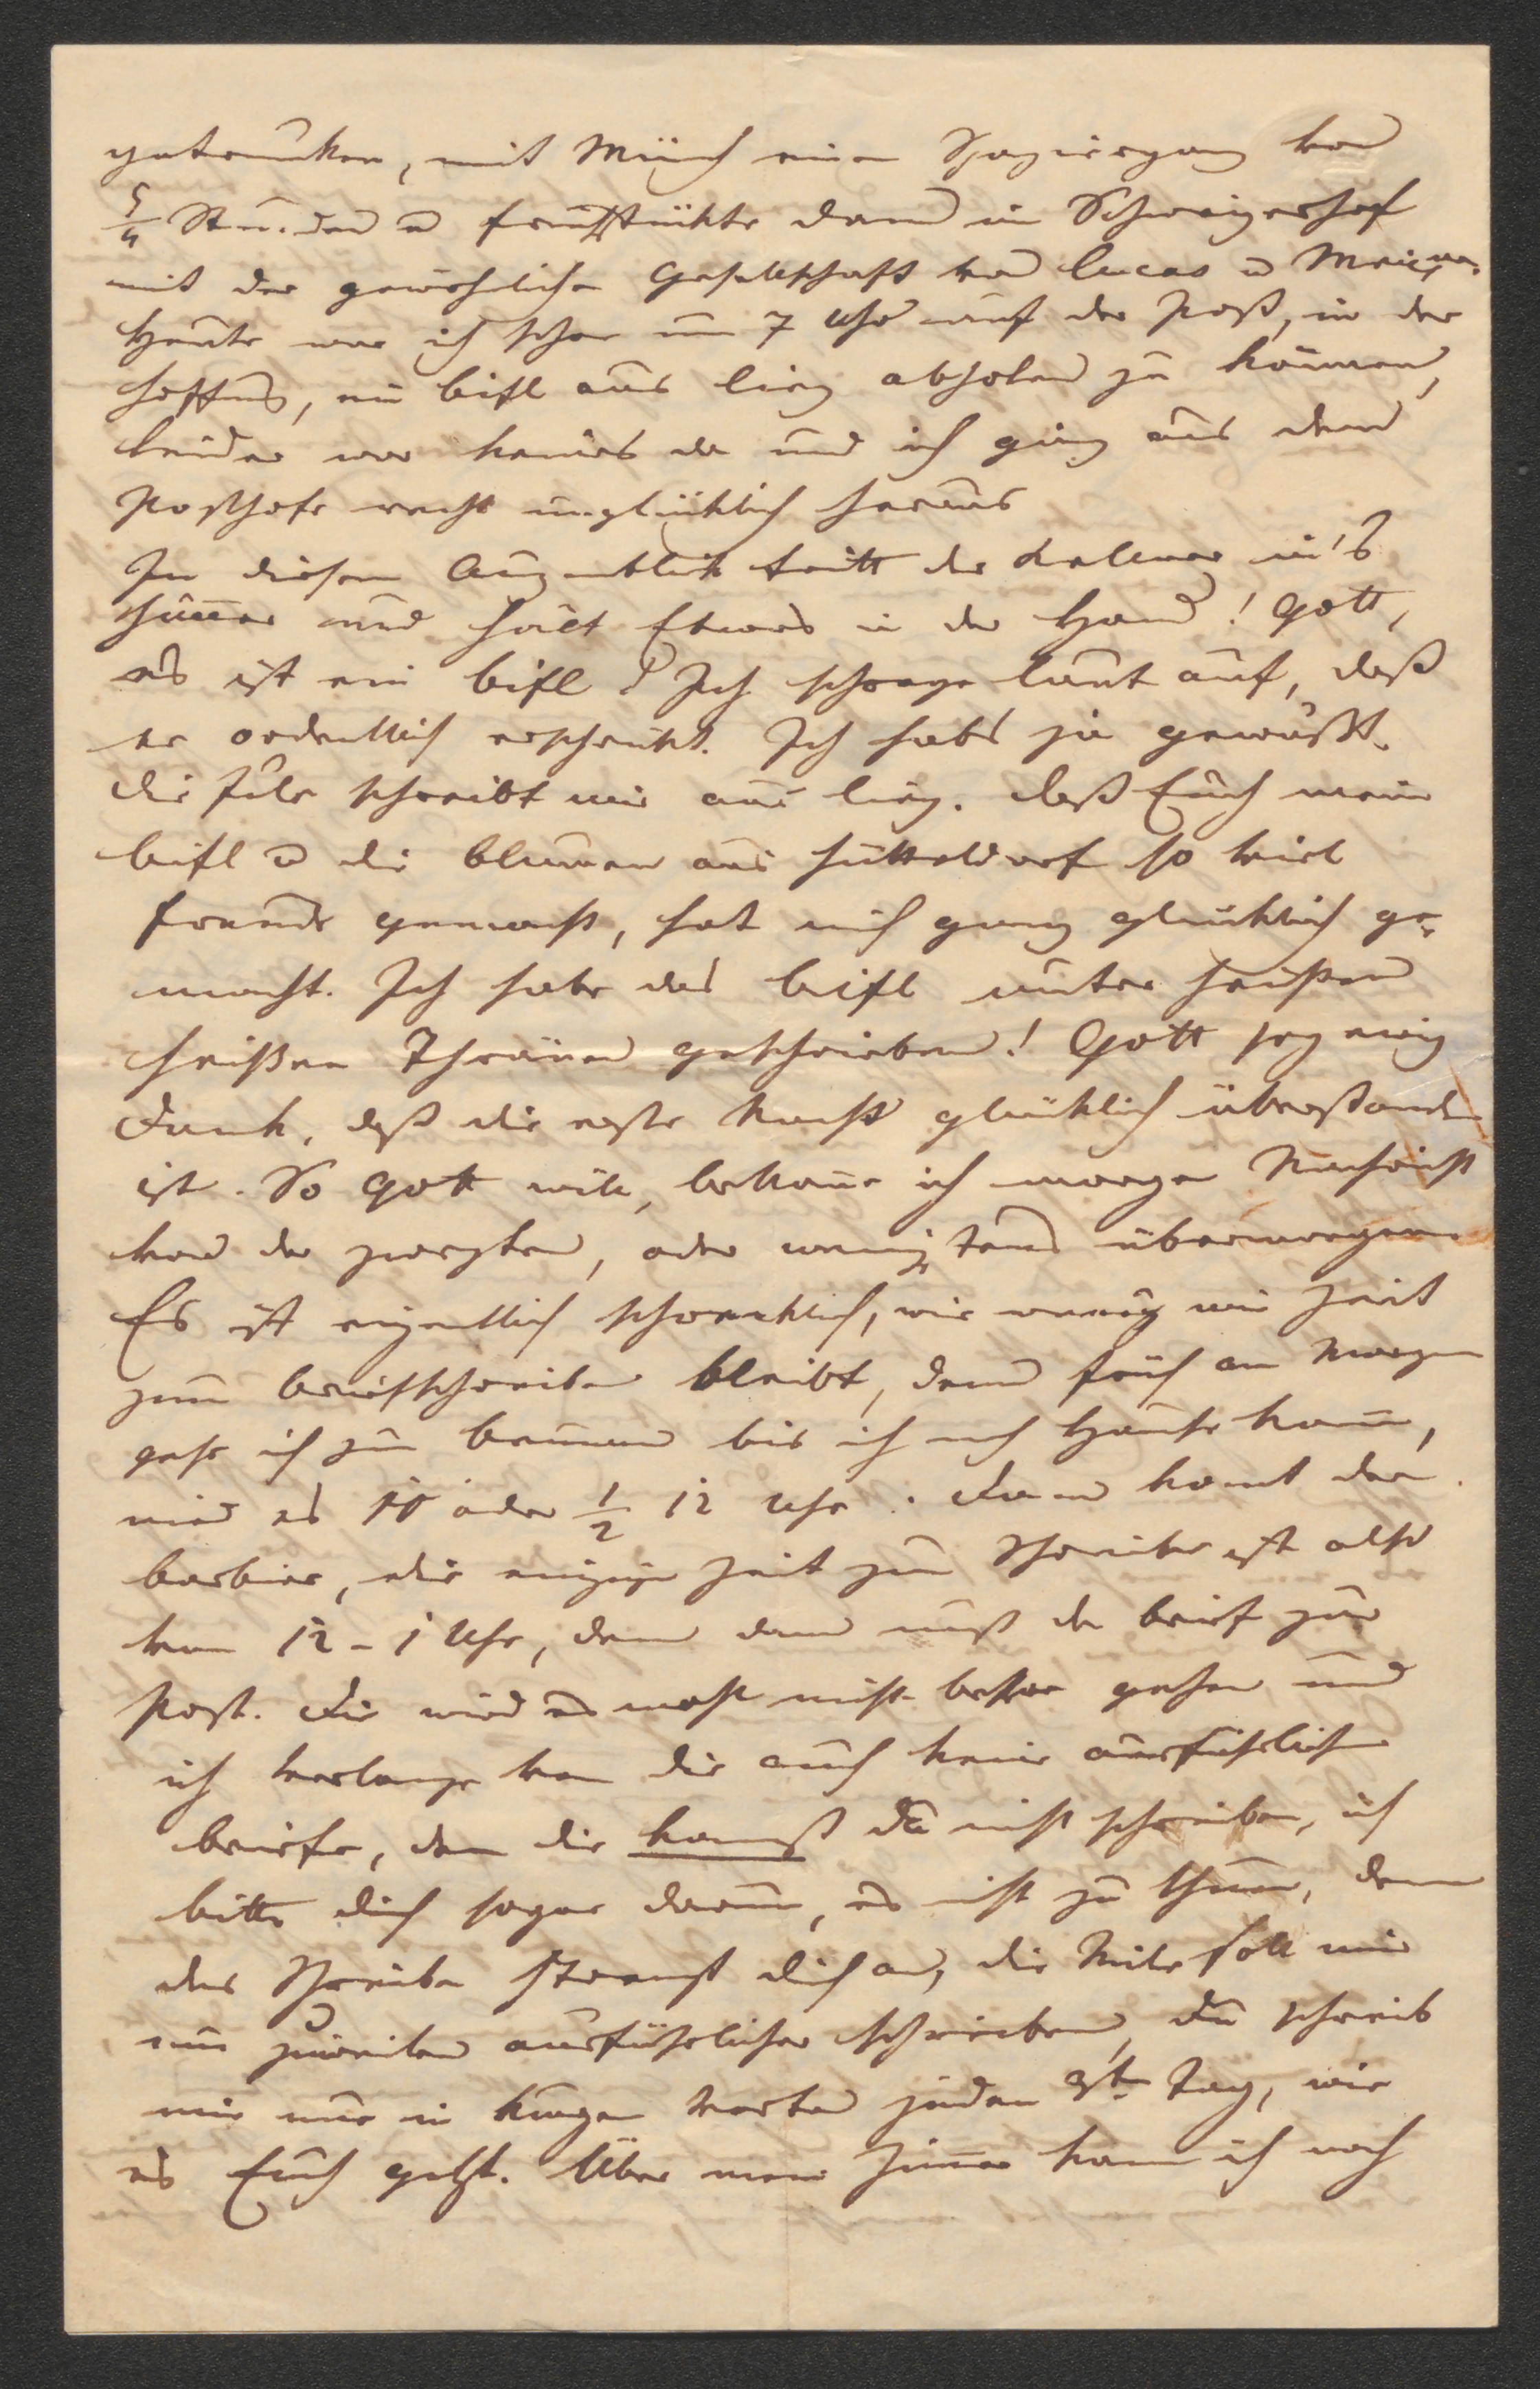 getrunken, mit Münch einen Spaziergang von
5/4 Stunden u frühstükte dann im Schweizerhof
mit der gewöhnlichen Gesellschaft von Lucas u
Heute war ich schon um 7 Uhr auf der Post, in der
Hoffnung, ein Briefl aus Linz abholen zu können,
leider war keines da und ich ging aus dem
Posthofe recht unglüklich heraus
In diesem Augenblick tritt der Kellner in's
Zimmer und hält Etwas in der Hand! Gott,
es ist ein Briefl! Ich schreye laut auf, daß
er ordentlich erschrikt. Ich habs ja gewußt,
die schreibt mir aus Linz. Daß Euch mein
Briefl u die Blumen aus Hütteldorf so viel
Freude gemacht, hat mich ganz glüklich ge=
macht. Ich habe das Briefl unter heißen
heißen Thränen geschrieben! Gott sey ewig
Dank, daß die erste Nacht glüklich überstanden
ist. So Gott will, bekome ich morgen Nachricht
von der zweyten, oder wenigstens übermorgen
Es ist eigentlich schrecklich, wie wenig mir Zeit
zum Briefschreiben bleibt, denn früh am Morgen
gehe ich zum Brunnen bis ich nach Hause kome,
wird es 11 oder 1/2 12 Uhr. Dann komt der
Barbier, die einzige Zeit zum Schreiben ist also
von 12 - 1 Uhr, denn dann muß der Brief zur
Post. Dir wird es wohl nicht besser gehen und
ich verlange von dir auch keine ausführlichen
Briefe, denn die kannst du nicht schreiben, ich
bitte dich sogar darum, es nicht zu thun, denn
das Schreiben strengt dich an, die soll mir
nun zuweilen ausführlicher schreiben, du schreib
mir nur in kurzen Worten jeden Tag, wie
es Euch geht. Über mein Zimmer kann ich noch